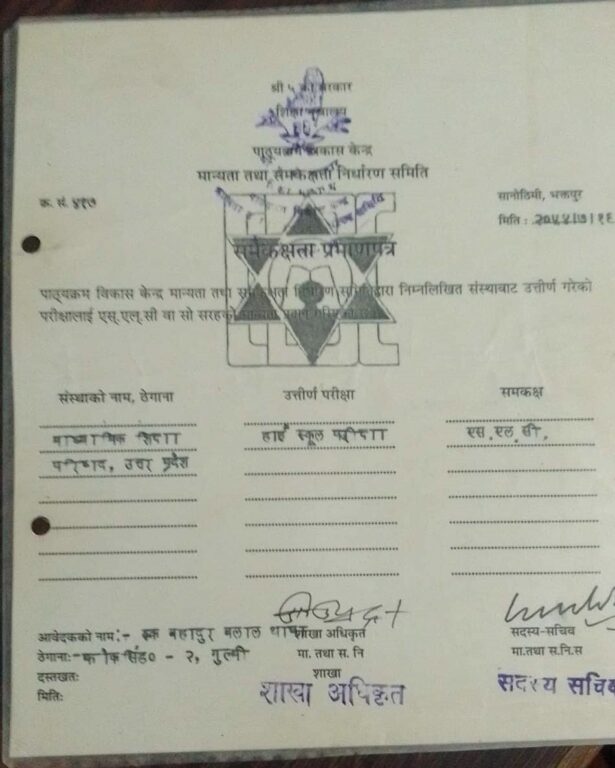 श्री ५ को सरकार
शिक्षा मन्त्रालय
पाठ्यक्रम विकास केन्द्र
मान्यता तथा समकक्षता निर्धारण समिति
क्र. सं. ४१७
सानोठिमी, भक्तपुर
मिति : २०५५।७।१६
समकक्षता प्रमाणपत्र
पाठ्यक्रम विकास केन्द्र मान्यता तथा समकक्षता निर्धारण समितिद्वारा निम्नलिखित संस्थाबाट उत्तीर्ण गरेको
परीक्षालाई एस् एल् सी वा सो सरहको मान्यता प्रदान
संस्थाको नाम, ठेगाना
उत्तीर्ण परीक्षा
समकक्ष
माध्यमिक शिक्षा
हाई स्कूल परीक्षा
एस. एल. सी.
परिषद, उत्तर प्रदेश
आवेदकको नाम:- बहादुर बलाल थापा
ठेगाना:- - २, गुल्मी
दस्तखत:
मिति:
शाखा अधिकृत
मा. तथा स. नि
शाखा
शाखा अधिकृत
सदस्य-सचिव
मा.तथा स.नि.स
सदस्य सचिव